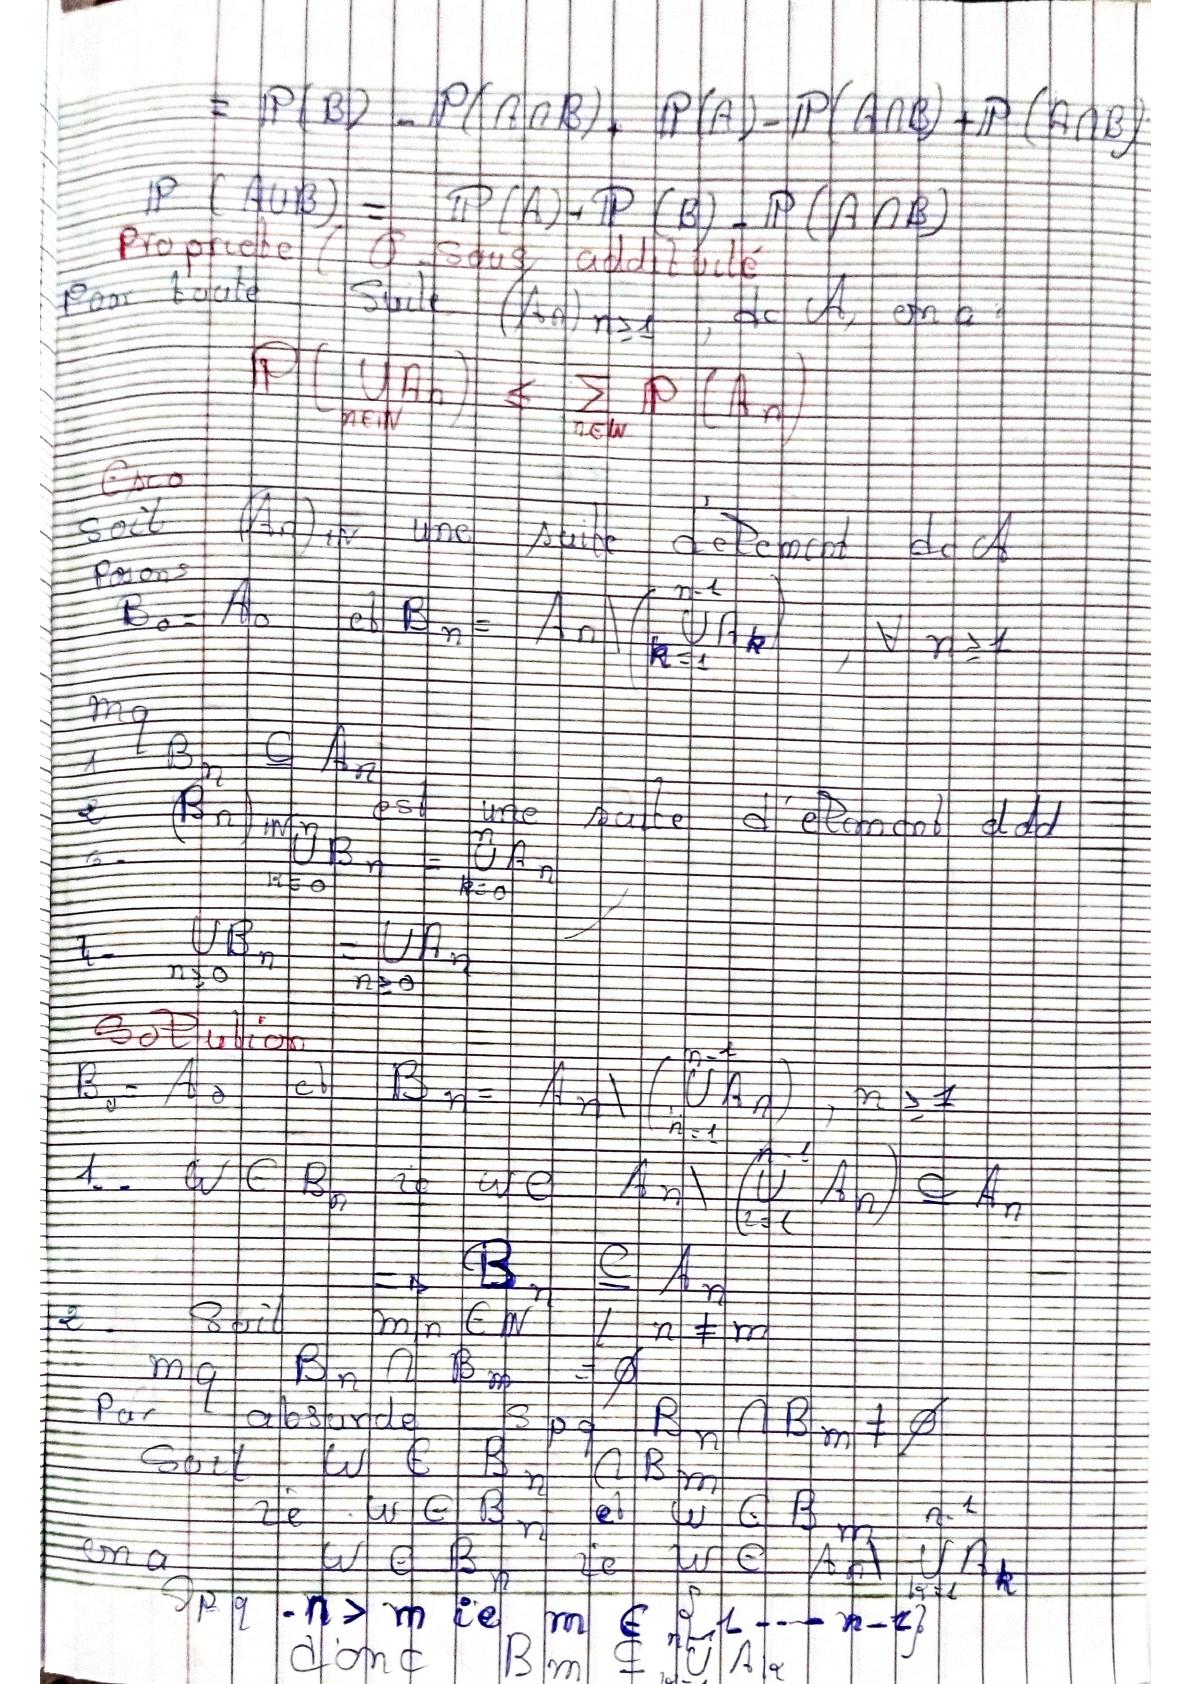 = ℙ(B) - ℙ(A∩B) + ℙ(A) - ℙ(A∩B) + ℙ(A∩B)
ℙ(A∪B) = ℙ(A) + ℙ(B) - ℙ(A∩B)
Propriete ( σ-sous additivité
Pour toute Suite (An)n≥1, de A, on a :
ℙ(∪An)n∈ℕ ≤ Σn∈ℕ ℙ(An)
Exo
Soit (An)ℕ une suite d'élement de A
Posons
B0 = A0 et Bn = An \ (∪k=1^n-1 Ak), ∀ n≥1
mq
1 Bn ⊆ An
2 (Bn)ℕ est une suite d'élement dàd
3- ∪k=0^n Bn = ∪k=0^n An
4- ∪n≥0 Bn = ∪n≥0 An
Solution
B0 = A0 et Bn = An \ (∪n=1^n-1 An), n≥1
1.- w ∈ Bn ie w ∈ An \ (∪k=1^n-1 An) ⊆ An
=> Bn ⊆ An
2. Soit m,n ∈ ℕ / n ≠ m
mq Bn ∩ Bm = ∅
Par absurde Spq Bn ∩ Bm ≠ ∅
Soit w ∈ Bn ∩ Bm
ie w ∈ Bn et w ∈ Bm
on a w ∈ Bn ie w ∈ An \ ∪k=1^n-1 Ak
Spq n > m ie m ∈ {1 ---- n-1}
donc Bm ⊄ ∪k=1^n-1 Ak